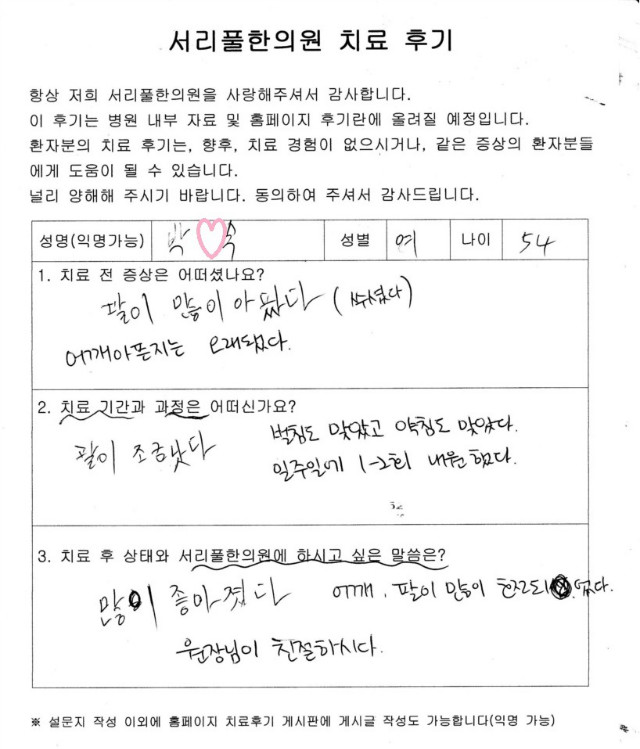 서리풀한의원 치료 후기
항상 저희 서리풀한의원을 사랑해주셔서 감사합니다.
이 후기는 병원 내부 자료 및 홈페이지 후기란에 올려질 예정입니다.
환자분의 치료 후기는, 향후, 치료 경험이 없으시거나, 같은 증상의 환자분들
에게 도움이 될 수 있습니다.
널리 양해해 주시기 바랍니다. 동의하여 주셔서 감사드립니다.
성명(익명가능) 박 숙 성별 여 나이 54
1. 치료 전 증상은 어떠셨나요?
팔이 많이 아팠다 (쑤셨다)
어깨아픈지는 오래됐다.
2. 치료 기간과 과정은 어떠신가요?
팔이 조금 났다
벌침도 맞았고 약침도 맞았다.
일주일에 1-2회 내원했다.
3. 치료 후 상태와 서리풀한의원에 하시고 싶은 말씀은?
많이 좋아졌다
어깨, 팔이 많이 호전되 었다.
원장님이 친절하시다.
※ 설문지 작성 이외에 홈페이지 치료후기 게시판에 게시글 작성도 가능합니다(익명 가능)